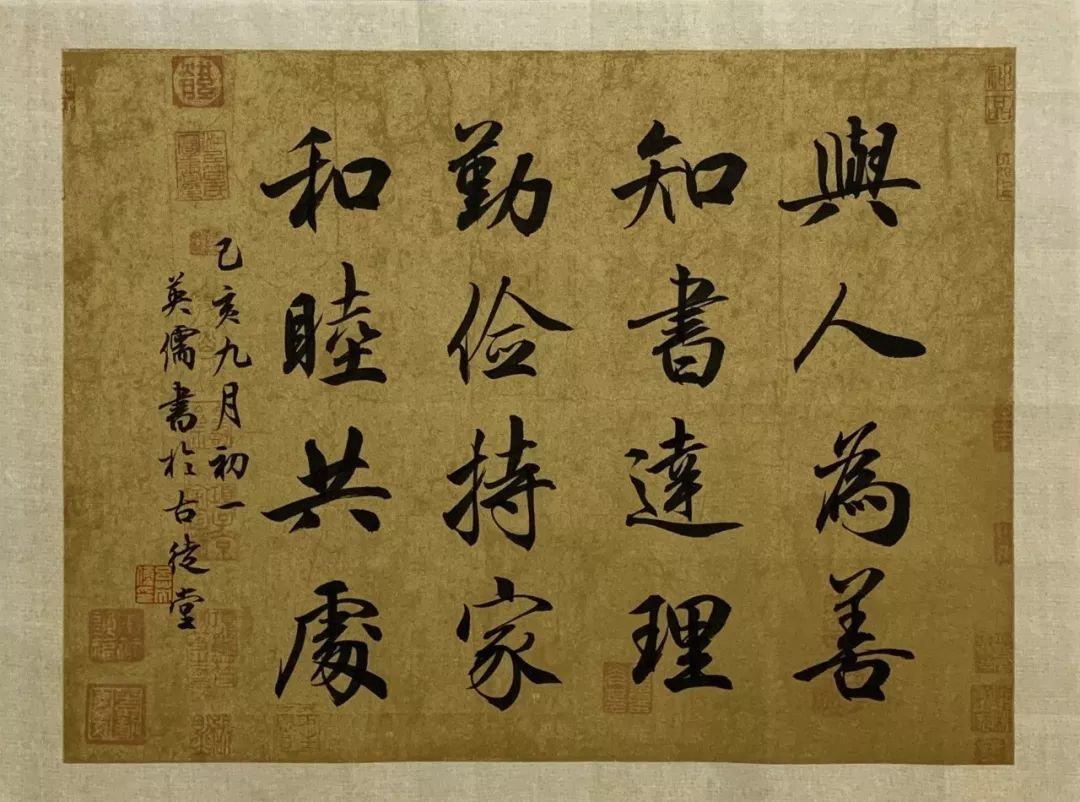 與人為善
知書達理
勤儉持家
和睦共處
己亥九月初一
英儒書於古徒堂